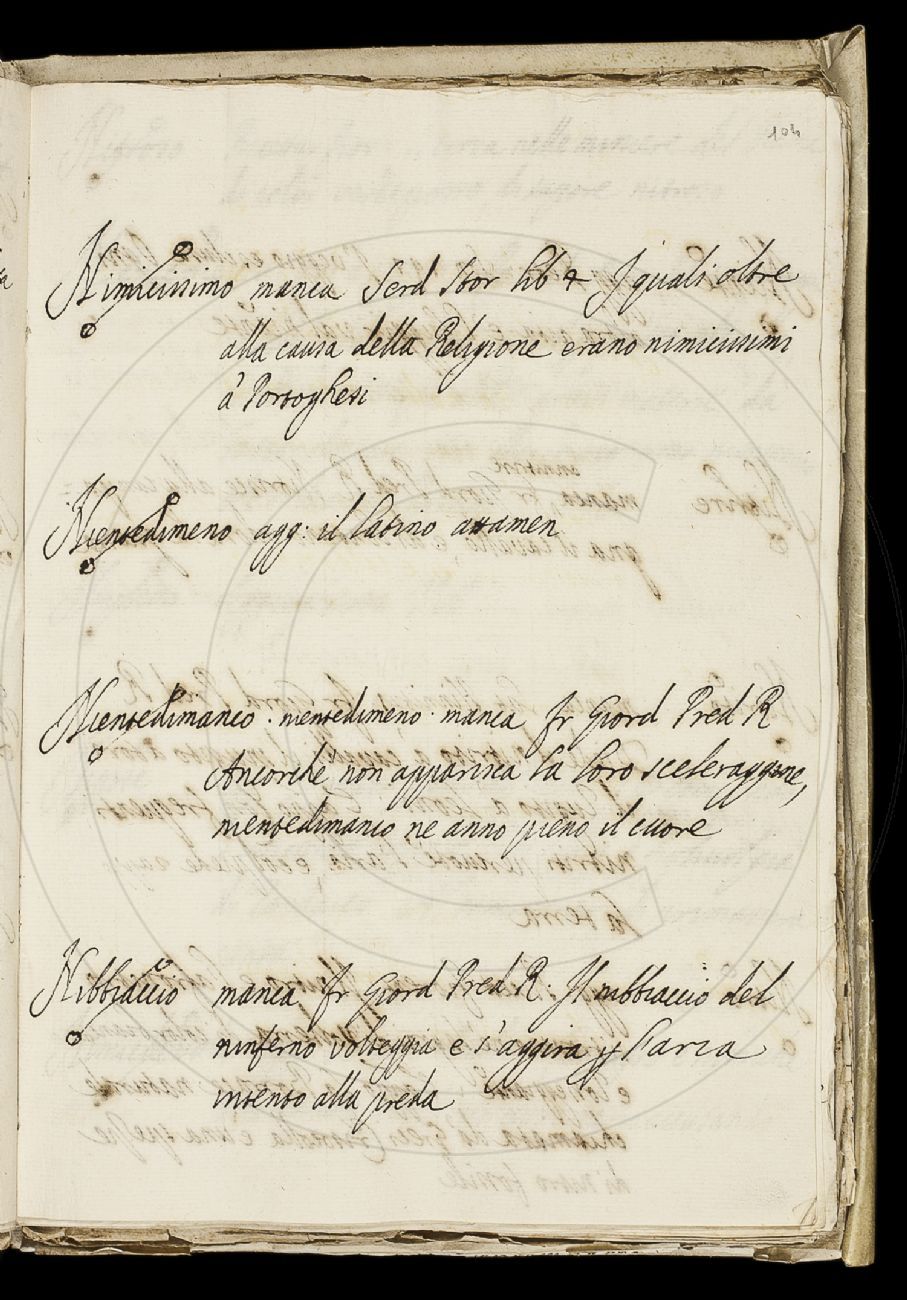 Nimicissimo manca Serd Stor lib 4 I quali oltre
alla causa della Religione erano nimicissimi
a' Portoghesi
Nientedimeno agg: il latino attamen
Nientedimanco . nientedimeno . manca fr Giord Pred R
Ancorchè non apparisca la loro sceleraggine,
nientedimanco ne anno pieno il cuore
Nibbiaccio manca fr Giord Pred R. Il nibbiaccio del
ninferno volteggia e s'aggira p l'aria
intento alla preda